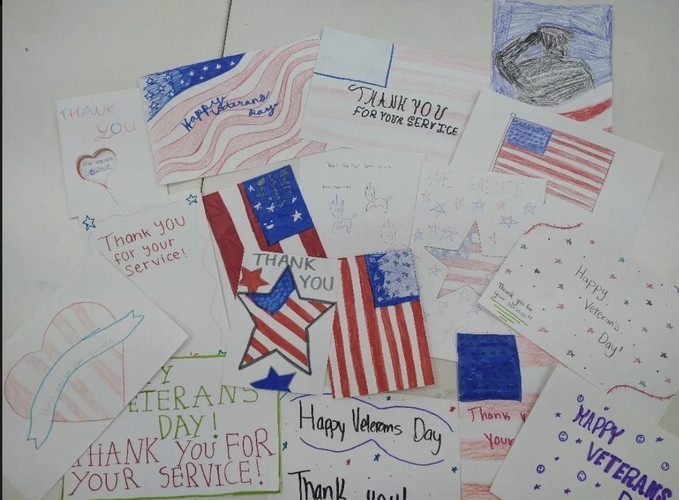 THANK
YOU
Happy Veterans
day
THANK YOU
FOR YOUR SERVICE
WE SALUTE
Thank you
for your
Service!
THANK
YOU
Happy
Veteran's
Day!
Thank you for
your service!!
VETERANS
DAY!
THANK YOU FOR
YOUR SERVICE!
Happy Veterans Day
Thank you!
Thank
Your
HAPPY
VETERANS